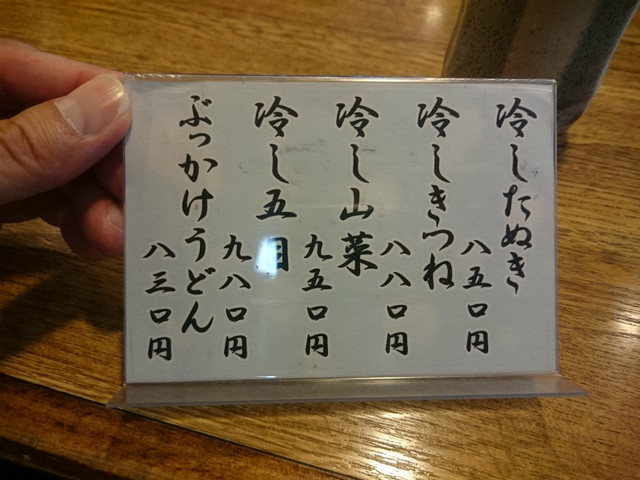 冷したぬき
八五〇円
冷しきつね
八八〇円
冷し山菜
九五〇円
冷し五目
九八〇円
ぶっかけうどん
八三〇円